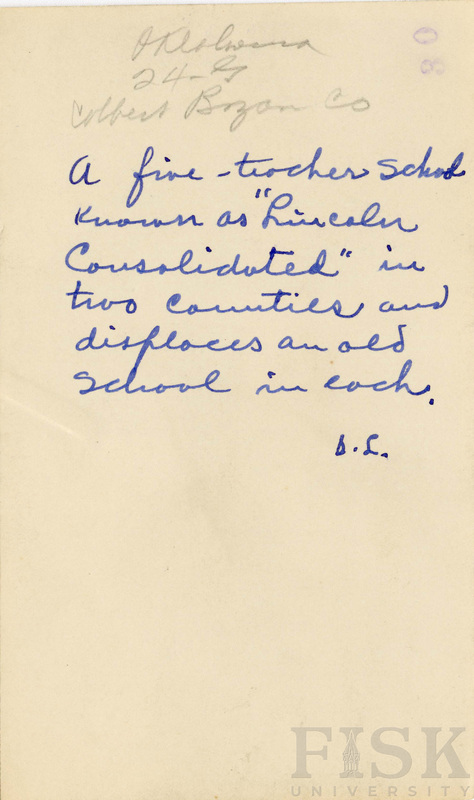 Oklahoma
24-G
Colbert Bozan Co
80
A five-teacher School
Known as "Lincoln
Consolidated" in
two counties and
displaces an old
School in each.
D.L.
FISK
UNIVERSITY